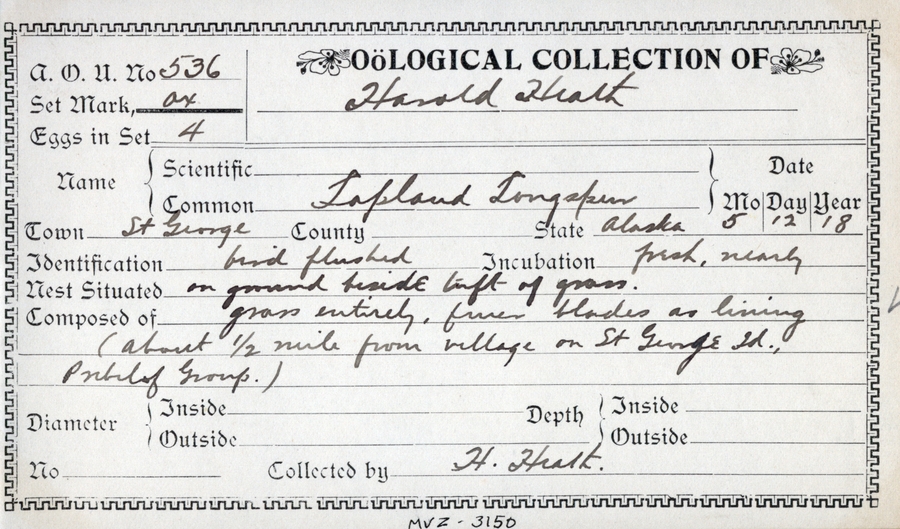 OöLOGICAL COLLECTION OF
A. O. U. No 536
Harold Heath
Set Mark, ox
Eggs in Set 4
Name Scientific Date
Common Lapland Longspur Mo Day Year
Town St George County State Alaska 5 12 18
Identification bird flushed Incubation fresh, nearly
Nest Situated on ground beside tuft of grass.
Composed of grass entirely, finer blades as lining
(about 1/2 mile from village on St George Id.,
Pribilof Group.)
Diameter Inside Depth Inside
Outside Outside
No Collected by H. Heath.
MVZ - 3150